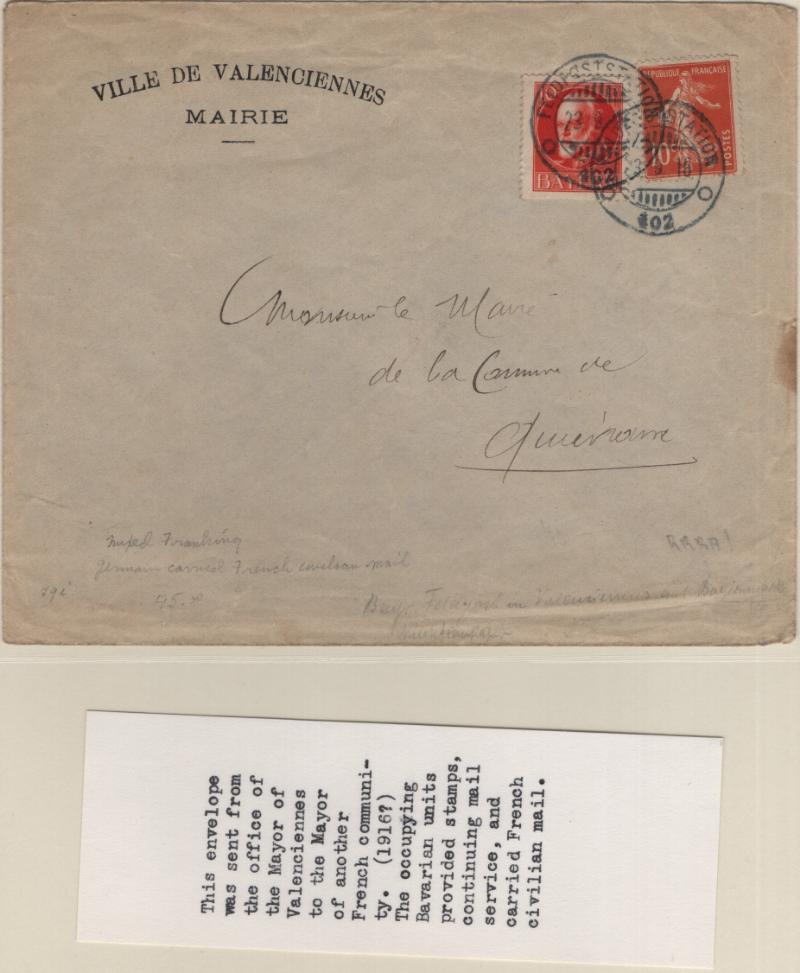 VILLE DE VALENCIENNES
MAIRIE
FELDPOSTSTATION
402
BAY
REPUBLIQUE FRANÇAISE
10
POSTES
STATION
402
Monsieur le Maire
de la Commune de
mixed Franking
German carried French civilian mail
45.
RRRR!
Bayr. Feldpost in Valenciennes
This envelope
was sent from
the office of
the Mayor of
Valenciennes
to the Mayor
of another
French communi-
ty. (1916?)
The occupying
Bavarian units
provided stamps,
continuing mail
service, and
carried French
civilian mail.